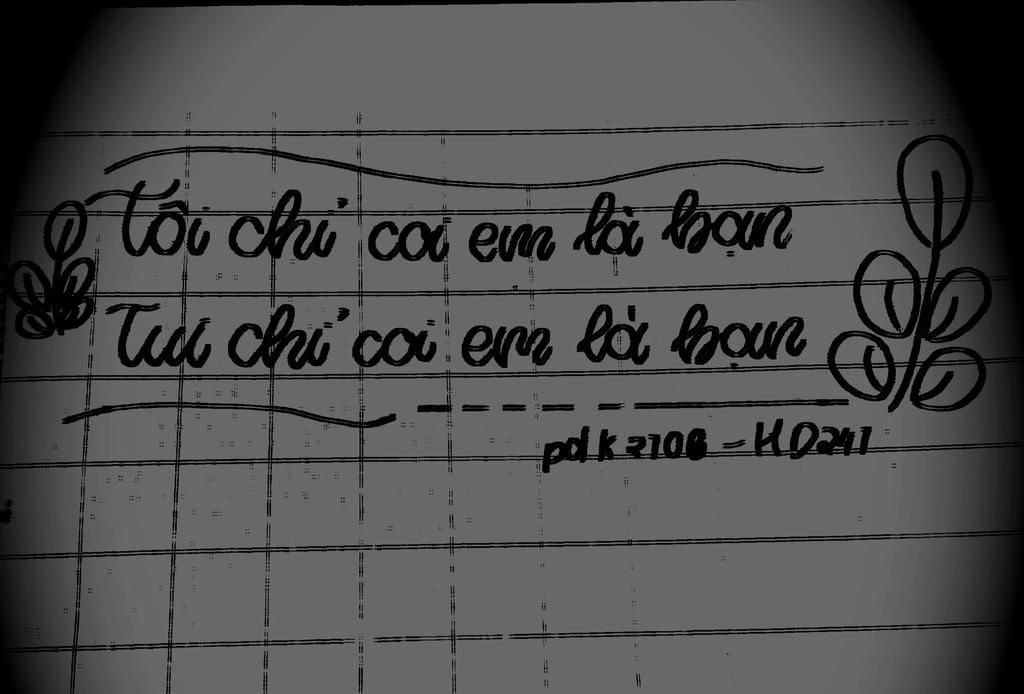 Tôi chỉ coi em là bạn
Tui chỉ coi em là bạn
pdlk2706 - HD241